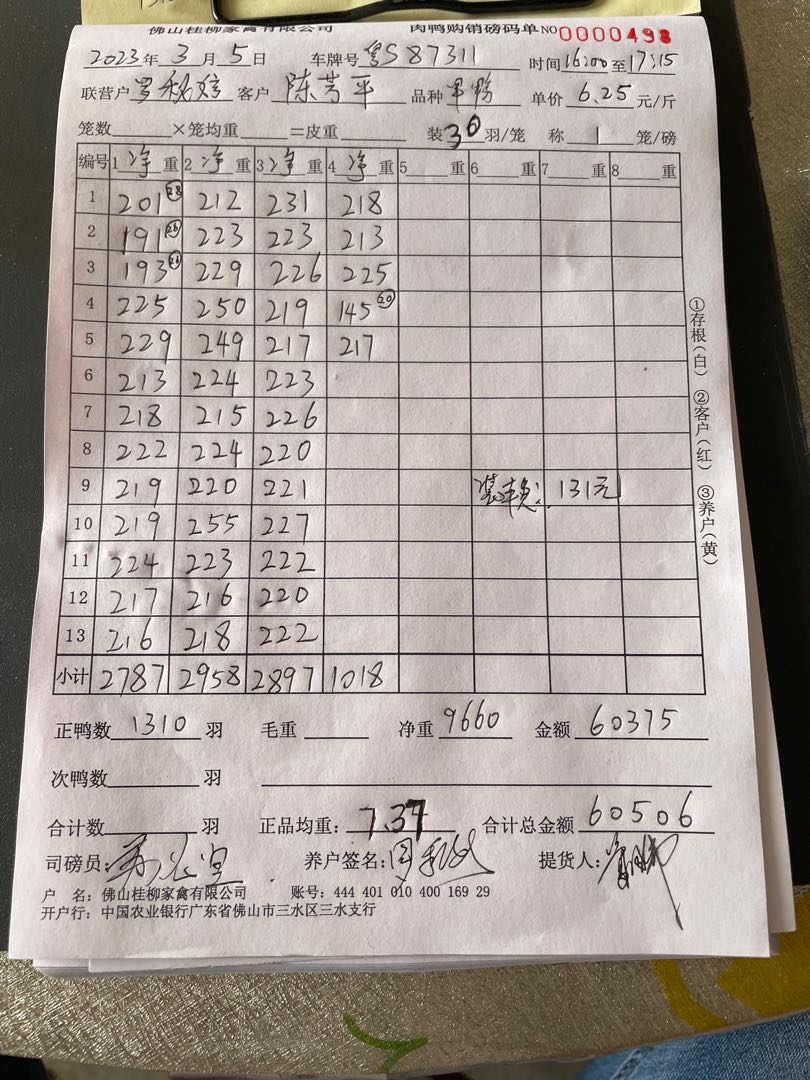 佛山桂柳家禽有限公司 肉鸭购销磅码单 NO 0000498
2023年3月5日 车牌号 粤S87311 时间16:00至17:15
联营户 客户 陈芳平 品种 单价 6.25 元/斤
笼数 ×笼均重 =皮重 装30羽/笼 称1笼/磅
编号 1净重 2净重 3净重 4净重 5重 6重 7重 8重
1 201 28 212 231 218
2 191 26 223 223 213
3 193 229 226 225
4 225 250 219 145 20
5 229 249 217 217
6 213 224 223
7 218 215 226
8 222 224 220
9 219 220 221 装车费: 131元
10 219 255 227
11 224 223 222
12 217 216 220
13 216 218 222
小计 2787 2958 2897 1018
①存根(白) ②客户(红) ③养户(黄)
正鸭数 1310 羽 毛重 净重 9660 金额 60375
次鸭数 羽
合计数 羽 正品均重: 7.37 合计总金额 60506
司磅员: 养户签名: 提货人:
户 名: 佛山桂柳家禽有限公司 账号: 444 401 010 400 169 29
开户行: 中国农业银行广东省佛山市三水区三水支行